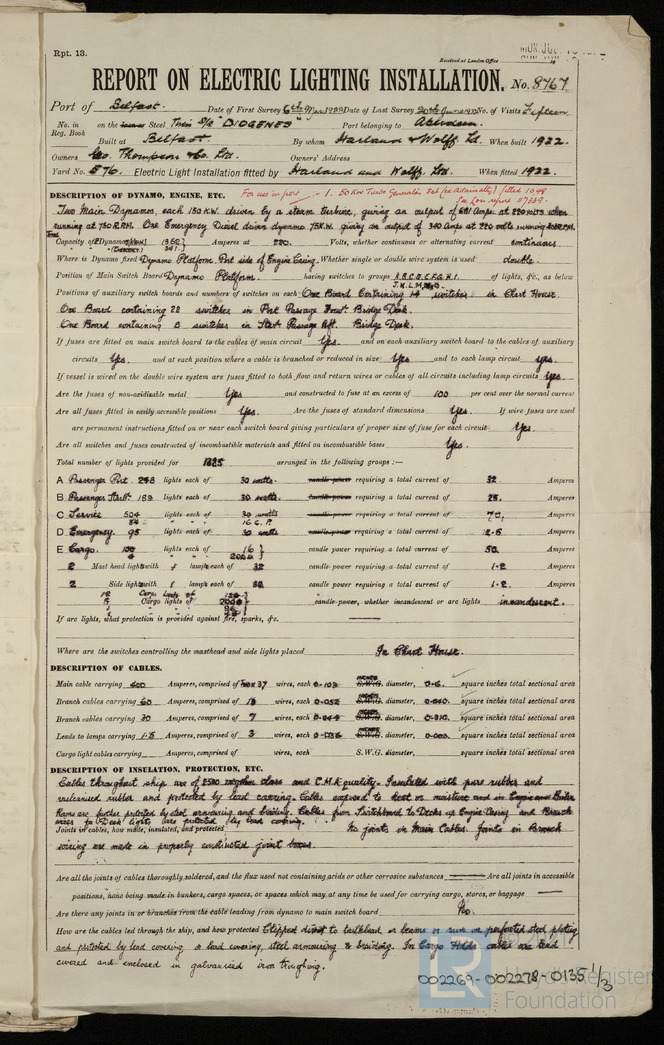 Rpt. 13.
Received at London Office
REPORT ON ELECTRIC LIGHTING INSTALLATION. No. 8767
Port of Belfast. Date of First Survey 6th Mar 1922 Date of Last Survey 20th June No. of Visits Fifteen
No. in Reg. Book on the Steel Twin S/S "DIOGENES" Port belonging to Aberdeen.
Built at Belfast. By whom Harland & Wolff Ld. When built 1922.
Owners Geo. Thompson & Co. Ltd. Owners' Address
Yard No. 576. Electric Light Installation fitted by Harland and Wolff, Ltd. When fitted 1922.
DESCRIPTION OF DYNAMO, ENGINE, ETC. For use in port 1. 50 KW Turbo Generator Set (ex Admiralty) fitted
See Lon report
Two Main Dynamos, each 150 K.W. driven by a steam turbine, giving an output of 681 Amps at 220 volts when
running at 750 R.P.M. One Emergency Diesel driven dynamo 75 K.W. giving an output of 340 Amps at 220 volts running
Capacity of Dynamo Amperes at 220. Volts, whether continuous or alternating current continuous
Where is Dynamo fixed Dynamo Platform. Port side of Engine Casing. Whether single or double wire system is used double.
Position of Main Switch Board Dynamo Platform. having switches to groups A.B.C.D.E.F.G.H.I. of lights, &c., as below
J.K.L.M.
Positions of auxiliary switch boards and numbers of switches on each One Board Containing 14 switches in Chart House.
One Board containing 22 switches in Port Passage Fowd. Bridge Deck.
One Board containing 8 switches in Starb. Passage Aft. Bridge Deck.
If fuses are fitted on main switch board to the cables of main circuit Yes. and on each auxiliary switch board to the cables of auxiliary
circuits Yes. and at each position where a cable is branched or reduced in size Yes and to each lamp circuit yes.
If vessel is wired on the double wire system are fuses fitted to both flow and return wires or cables of all circuits including lamp circuits Yes.
Are the fuses of non-oxidizable metal Yes and constructed to fuse at an excess of 100 per cent over the normal current
Are all fuses fitted in easily accessible positions Yes. Are the fuses of standard dimensions Yes. If wire fuses are used
are permanent instructions fitted on or near each switch board giving particulars of proper size of fuse for each circuit Yes.
Are all switches and fuses constructed of incombustible materials and fitted on incombustible bases Yes.
Total number of lights provided for arranged in the following groups :—
A Passenger Port 248 lights each of 30 watts. candle power requiring a total current of 32. Amperes
B Passenger Starb. 189 lights each of 30 watts. candle power requiring a total current of 25. Amperes
C Service 504 lights each of 30 watts candle power requiring a total current of 70. Amperes
16 C.P.
D Emergency. 95 lights each of 30 watts candle power requiring a total current of 12.5 Amperes
E Cargo. lights each of 16 candle power requiring a total current of 50. Amperes
2 Mast head lights with 1 lamps each of 32 candle power requiring a total current of 1.2 Amperes
2 Side lights with 1 lamps each of 32 candle power requiring a total current of 1.2 Amperes
Cargo lights of candle power, whether incandescent or arc lights incandescent.
If arc lights, what protection is provided against fire, sparks, &c.
Where are the switches controlling the masthead and side lights placed In Chart House.
DESCRIPTION OF CABLES.
Main cable carrying 400 Amperes, comprised of 37 wires, each 0.103 S.W.G. diameter, 0.6. square inches total sectional area
Branch cables carrying 60 Amperes, comprised of wires, each 0.052 S.W.G. diameter, 0.040. square inches total sectional area
Branch cables carrying 30 Amperes, comprised of 7 wires, each S.W.G. diameter, 0.010. square inches total sectional area
Leads to lamps carrying 1.5 Amperes, comprised of 3 wires, each 0.036 S.W.G. diameter, 0.003. square inches total sectional area
Cargo light cables carrying Amperes, comprised of wires, each S.W.G. diameter, square inches total sectional area
DESCRIPTION OF INSULATION, PROTECTION, ETC.
Cables throughout ship are of 2500 megohm class and C.M.A. quality. Insulated with pure rubber and
vulcanised rubber and protected by lead covering. Cables exposed to heat or moisture and in Engine and Boiler
Rooms are further protected by steel armouring and braiding. Cables from Switchboard to Decks up Engine Casing and Branch
lights are protected by lead covering.
Joints in cables, how made, insulated, and protected No joints in Main Cables. Joints in Branch
wiring are made in properly constructed joint boxes.
Are all the joints of cables thoroughly soldered, and the flux used not containing acids or other corrosive substances Are all joints in accessible
positions, none being made in bunkers, cargo spaces, or spaces which may at any time be used for carrying cargo, stores, or baggage
Are there any joints in or branches from the cable leading from dynamo to main switch board No.
How are the cables led through the ship, and how protected Clipped direct to bulkhead or beams or run on perforated steel plating
and protected by lead covering or lead covering, steel armouring & braiding. In Cargo Holds cables are lead
covered and enclosed in galvanised iron troughing.
002269-002278-0135 1/3
Lloyd's Register
Foundation